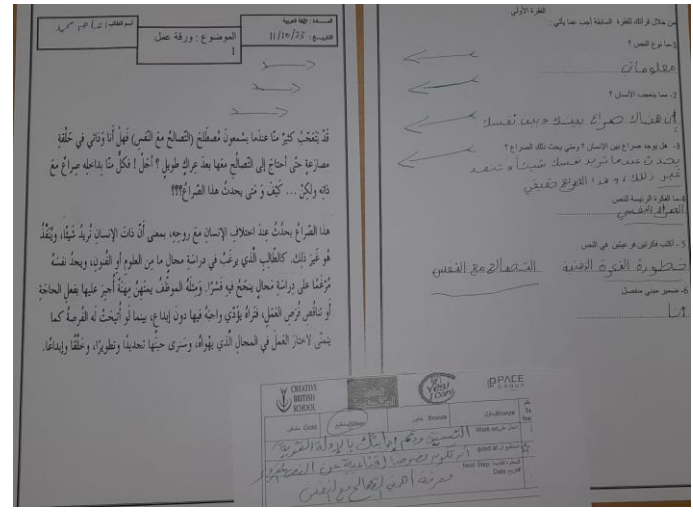 المـــادة : اللغة العربية
التاريـــخ: 11/10/23
الموضوع : ورقة عمل
1
اسم الطالب :
قَدْ يَتَعَجَّبُ كثيرٌ منّا عندَما يسْمعونَ مُصطلحَ (التَّصالحُ معَ النَّفسِ) فهلْ أنا وذاتي في حَلْقةِ
مصارَعةٍ حتّى أحتاجَ إلى التّصالُحِ معَها بعدَ عِراكٍ طويلٍ ؟ أجَلْ ! فكلٌّ منّا بِداخلِهِ صِراعٌ معَ
ذاتِه ولكِنْ ... كَيْفَ وَ مَتى يحدثُ هذا الصِّراعُ؟؟؟
هذا الصِّراعُ يحدُثُ عندَ اختلافِ الإنسانِ معَ روحِهِ، بمعنى أنَّ ذاتَ الإنسانِ تُريدُ شَيْئًا، ويُنَفِّذُ
هوَ غَيرَ ذلك. كالطّالبِ الَّذي يرغَبُ في دراسَةِ مجالٍ ما مِن العلومِ أو الفُنونِ، ويجدُ نفسَهُ
مُرْغَمًا على دِراسَةِ مَجالٍ ينجَحُ فيهِ قَسْرًا. ومِثلُهُ الموظَّفُ يمتَهِنُ مِهنَةً أُجبِرَ عليها بفعلِ الحاجَةِ
أو تَناقُصِ فُرَصِ العَمَلِ، فتَراهُ يؤدّي واجبَهُ فيها دونَ إبداعٍ، بينما لَو أُتيحَتْ لَه الفُرصةُ كما
يتمنّى لاختارَ العَملَ في المجالِ الَّذي يهْواهُ، وسَنرى حينَها تَجديدًا وتَطويرًا، وخَلْقًا وإبداعًا.
الفقرة الأولى
من خلال قراءتك للفقرة السابقة أجب عما يأتي :
1-ما نوع النص ؟
معلوماتي
2- مما يتعجب الأنسان ؟
أن هناك صراع بينك وبين نفسك
3- هل يوجد صراع بين الإنسان ؟ ومتى يحث ذلك الصراع ؟
يحدث عندما تريد نفسك شيئاً و تنفذ
غير ذلك ، و هذا الصراع حقيقي
4-ما الفكرة الرئيسة للنص
الصراع النفسي
5 - أكتب فكرتين فرعيتين في النص
خطورة التصالح مع النفس
6- ضمير مبني منفصل
أنا
CREATIVE
BRITISH
SCHOOL
Yes I can!
PACE
GROUP
Gold
Bronze
Bronze
Work on
good at
Next Step
Date
معرفة أهمية التصالح مع النفس